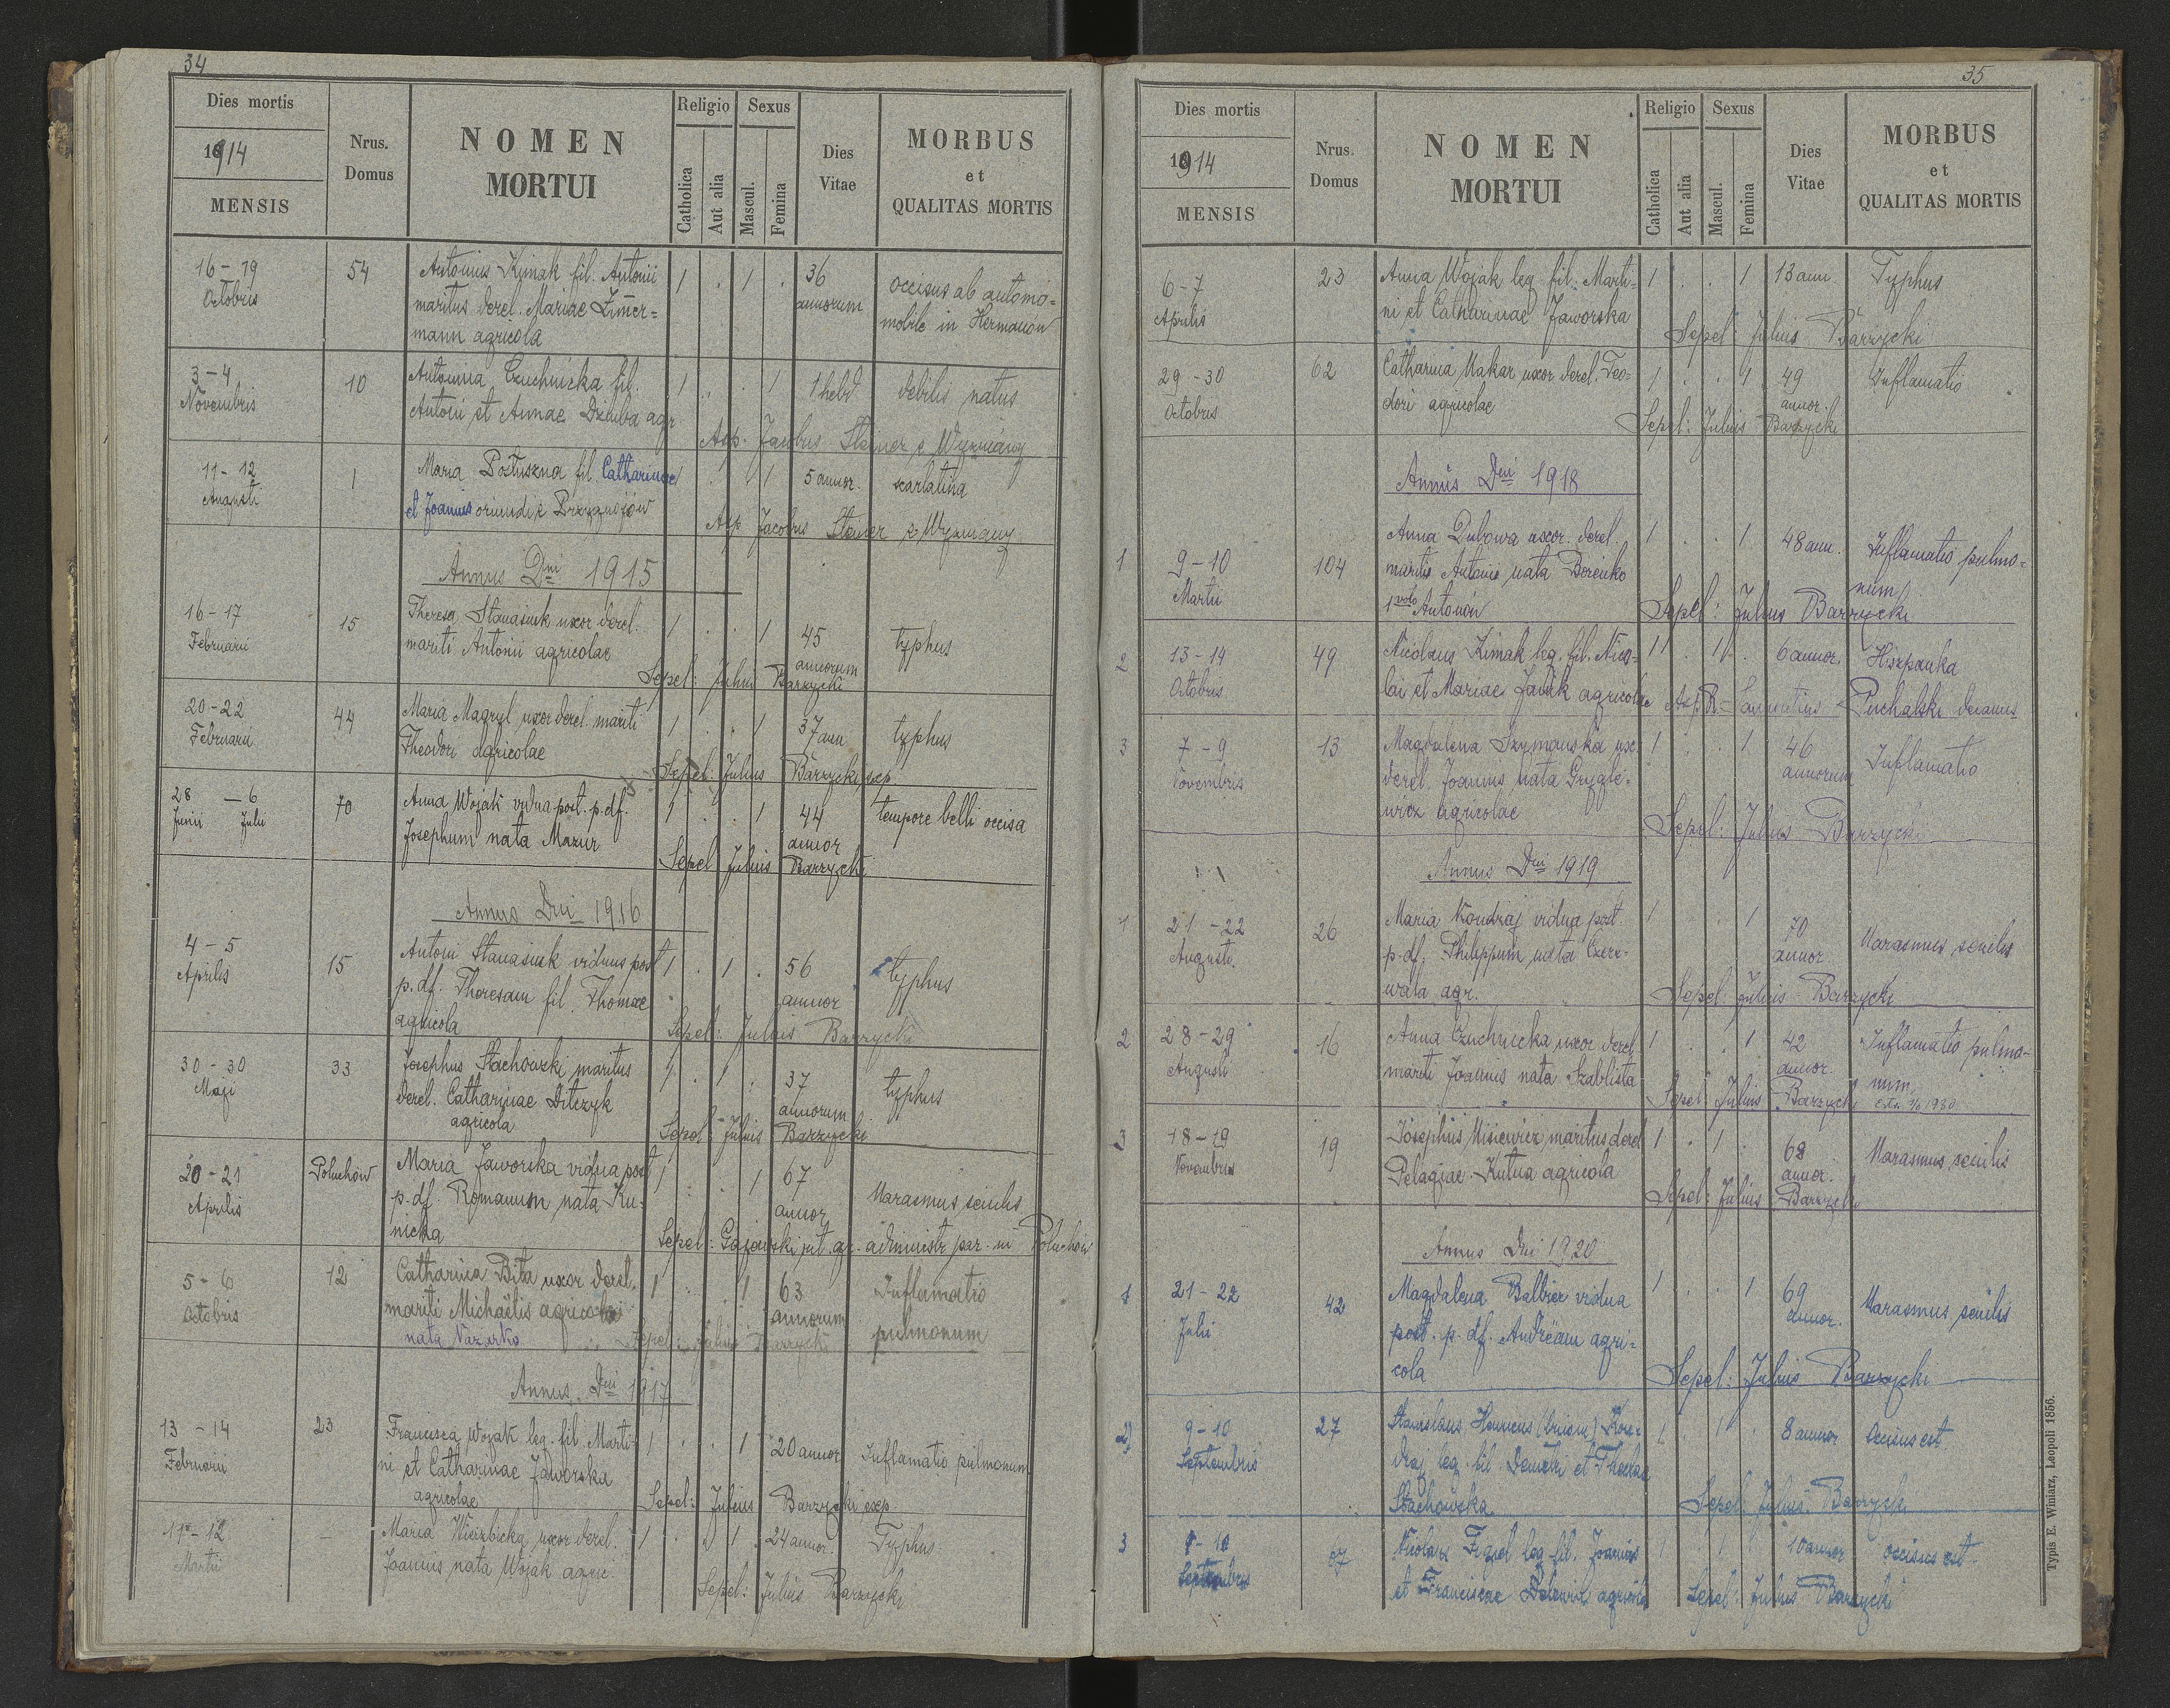 34
Dies mortis
1914
MENSIS
Nrus.
Domus
NOMEN
MORTUI
Religio
Catholica
Aut alia
Sexus
Mascul.
Femina
Dies
Vitae
MORBUS
et
QUALITAS MORTIS
16-19
Octobris
54
Antonius Kimak fil. Antonii
maritus derel. Mariae Zimer=
mann agricola
1 . 1 .
36
annorum
occisus ab automo=
mobile in Hermanów
3-4
Novembris
10
Antonina Czuchnicka fil.
Antonii et Annae Dziuba agr
1 . . 1
1 hebd
debilis natus
Asp. Jacobus Steiner e Wyżniany
11-12
Augusti
1
Maria Postuszna fil. Catharinae
et Joannis oriundi e Przegnojów
1
5 annor.
scarlatina
Asp Jacobus Steiner e Wyżniany
Annus Dni 1915
16-17
Februarii
15
Theresa Stanasiuk uxor derel.
mariti Antonii agricolae
1 . . 1
45
annorum
typhus
Sepel: Julius Barzycki
20-22
Februarii
44
Maria Magryl uxor derel. mariti
Theodori agricolae
1 . . 1
37 ann
typhus
Sepel: Julius Barzycki exp.
28 — 6
Junii Julii
70
Anna Wojak vidua post. p. df.
Josephum nata Mazur
1 . . 1
44
annor
tempore belli occisa
Sepel Julius Barzycki
Annus Dni 1916
4-5
Aprilis
15
Antoni Stanasiuk viduus post
p. df. Theresam fil. Thomae
agricola
1 . 1 .
56
annor
typhus
Sepel: Julius Barzycki
30-30
Maji
33
Josephus Stachowski maritus
derel. Catharinae Ditczyk
agricola
1 . 1 .
37
annorum
typhus
Sepel: Julius Barzycki
20-21
Aprilis
Poluchów
Maria Jaworska vidua post
p. df. Romanum nata Ku=
nicka
1 . . 1
67
annor
Marasmus senilis
Sepel: Gajowski rit. gr. administr. par. in Poluchów
5-6
Octobris
12
Catharina Bita uxor derel.
mariti Michaëlis agricolae
nata Nazarko
1 . . 1
63
annorum
Inflamatio
pulmonum
Sepel: Julius Barzycki
Annus Dni 1917
13-14
Februarii
23
Francisca Wojak leg. fil. Marti=
ni et Catharinae Jaworska
agricolae
1 . . 1
20 annor
Inflamatio pulmonum
Sepel: Julius Barzycki exp
11-12
Martii
-
Maria Wierzbicka uxor derel.
Joannis nata Wojak agric.
1 . . 1
24 annor.
Typhus
Sepel: Julius Barzycki
35
Dies mortis
1914
MENSIS
Nrus.
Domus
NOMEN
MORTUI
Religio
Catholica
Aut alia
Sexus
Mascul.
Femina
Dies
Vitae
MORBUS
et
QUALITAS MORTIS
6-7
Aprilis
23
Anna Wojak leg fil. Marti=
ni et Catharinae Jaworska
1 . . 1
13 ann.
Typhus
Sepel: Julius Barzycki
29-30
Octobris
62
Catharina Makar uxor derel. Teo=
dori agricolae
1 . . 1
49
annor.
Inflamatio
Sepel: Julius Barzycki
Annus Dni 1918
1
9-10
Martii
104
Anna Dubowa uxor. derel.
mariti Antonii nata Berenko
1 voto Antonów
1 . . 1
48 ann.
Inflamatio pulmo=
num
Sepel: Julius Barzycki
2
13-14
Octobris
49
Nicolaus Kimak leg. fil. Nico=
lai et Mariae Janik agricolae
1 . 1 .
6 annor.
Hiszpanka
Asp R Laurentius Puchalski decanus
3
7-9
Novembris
13
Magdalena Szymańska uxor
derel. Joannis nata Grygle=
wicz agricolae
1 . . 1
46
annorum
Inflamatio
Sepel: Julius Barzycki
Annus Dni 1919
1
21-22
Augusti
26
Maria Kondraj vidua post.
p. df. Philippum nata Czere=
wata agr.
1 . . 1
70
annor
Marasmus senilis
Sepel: Julius Barzycki
2
28-29
Augusti
16
Anna Czuchnicka uxor derel.
mariti Joannis nata Szablista
1 . . 1
42
annor.
Inflamatio pulmo=
num
Sepel: Julius Barzycki
3
18-19
Novembris
19
Josephus Misiewicz maritus derel
Pelagiae Kutna agricola
1 . 1 .
68
annor.
Marasmus senilis
Sepel: Julius Barzycki
Annus Dni 1920
1
21-22
Julii
42
Magdalena Balbier vidua
post. p. df. Andream agri=
cola
1 . . 1
69
annor.
Marasmus senilis
Sepel: Julius Barzycki
2
9-10
Septembris
27
Stanislaus Henricus (binom)
leg. fil. Demetri et Theclae
Stachowska
1 . 1 .
8 annor
Occisus est
Sepel: Julius Barzycki
3
Septembris
Nicolaus leg. fil. Joannis
et Franciscae agricola
1 . 1 .
10 annor
occisus est
Sepel: Julius Barzycki
Typis E. Winiarz, Leopoli 1856.